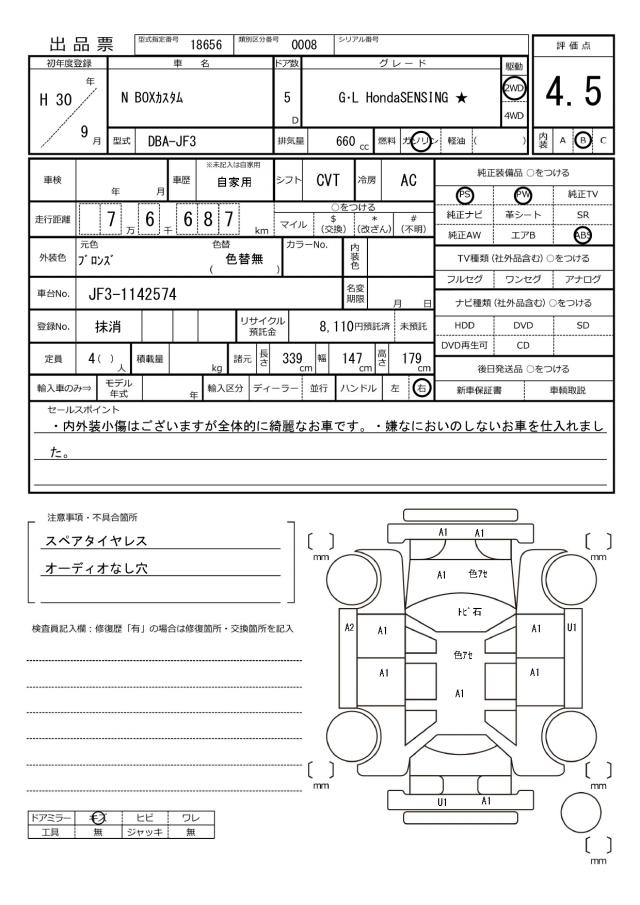 出品票 型式指定番号 18656 類別区分番号 0008 シリアル番号
評価点
4.5
内装 A B C
初年度登録 車名 ドア数 グレード 駆動
H 30 年 9 月
N BOXカスタム 5 D G・L HondaSENSING ★ 2WD 4WD
型式 DBA-JF3 排気量 660 cc 燃料 ガソリン 軽油 ( )
車検 年 月 車歴 ※未記入は自家用 自家用 シフト CVT 冷房 AC
走行距離 7 万 6 千 6 8 7 km
○をつける
マイル $(交換) *(改ざん) #(不明)
外装色 元色 ブロンズ 色替 ( 色替無 ) カラーNo. 内装色
車台No. JF3-1142574 名変期限 月 日
登録No. 抹消 リサイクル預託金 8,110円預託済 未預託
定員 4( )人 積載量 kg 諸元 長さ 339 cm 幅 147 cm 高さ 179 cm
輸入車のみ⇒ モデル年式 年 輸入区分 ディーラー 並行 ハンドル 左 右
純正装備品 ○をつける
PS PW 純正TV
純正ナビ 革シート SR
純正AW エアB ABS
TV種類(社外品含む)○をつける
フルセグ ワンセグ アナログ
ナビ種類(社外品含む)○をつける
HDD DVD SD
DVD再生可 CD
後日発送品 ○をつける
新車保証書 車輌取説
セールスポイント
・内外装小傷はございますが全体的に綺麗なお車です。・嫌なにおいのしないお車を仕入れまし
た。
注意事項・不具合箇所
スペアタイヤレス
オーディオなし穴
検査員記入欄：修復歴「有」の場合は修復箇所・交換箇所を記入
ドアミラー キズ ヒビ ワレ
工具 無 ジャッキ 無
〔 〕 mm A1 A1 〔 〕 mm
A1 色アセ
トビ石
A2 A1 A1 U1
色アセ
A1 A1
A1
〔 〕 mm 〔 〕 mm
U1 A1
〔 〕 mm